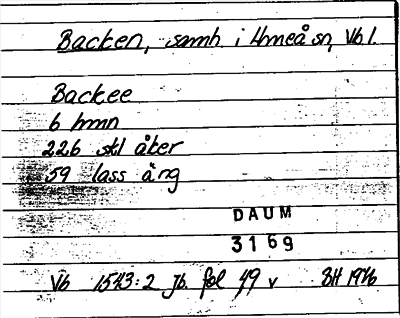 Backen, samh i Umeå sn, Vb l.
Backee
6 hmn
226 skl åker
59 lass äng
DAUM
3169
Vb 1543:2 Jb. fol 49 v BH 1976